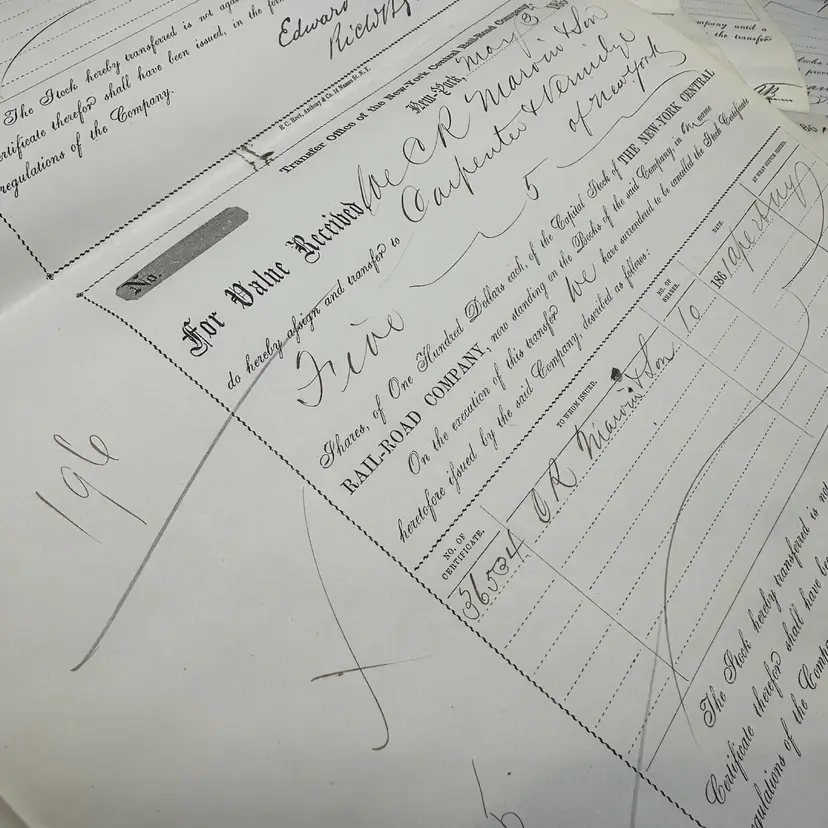 Edward
The Stock hereby transferred is not
Certificate therefor shall have been issued, in the
regulations of the Company.
Transfer Office of the New-York Central Rail-Road Company,
New-York May 3
No.
For Value Received We C R Marvin & Son
do hereby assign and transfer to Carpenter &
of New York
Five 5
Shares, of One Hundred Dollars each, of the Capital Stock of THE NEW-YORK CENTRAL
RAIL-ROAD COMPANY, now standing on the Books of the said Company, in our name
On the execution of this transfer We have surrendered to be cancelled the Stock Certificate
heretofore issued by the said Company, described as follows:
NO. OF CERTIFICATE. TO WHOM ISSUED. NO. OF SHARES. DATE. BY WHAT OFFICE ISSUED.
36534 C R Marvin & Son 10 186
196
The Stock hereby transferred is not
Certificate therefor shall have been
regulations of the Company
company until a
the transfer